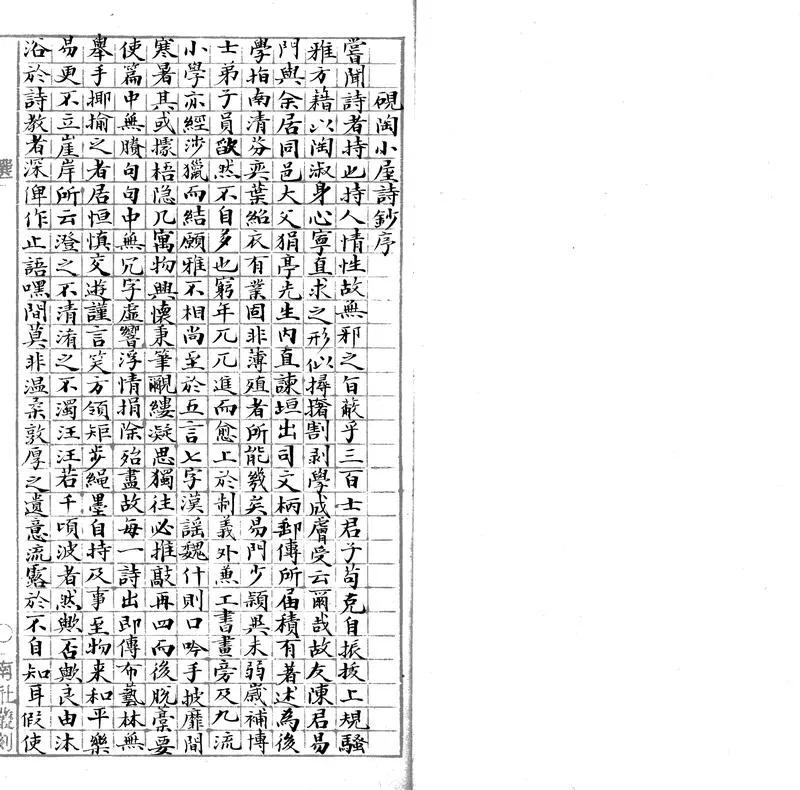 硯陶小屋詩鈔序
嘗聞詩者持也持人情性故無邪之旨蔽乎三百士君子苟克自振拔上規騷
雅方藉以陶淑身心寧直求之形似撏撦割剥學成膚受云爾哉故友陳君易
門與余居同邑大父狷亭先生内直諫垣出司文柄郵傳所屆積有著述為後
學指南清芬奕葉紹衣有業固非薄殖者所能幾矣易門少穎異未弱歲補博
士弟子員欿然不自多也窮年兀兀進而愈上於制義外兼工書畫旁及九流
小學亦經涉獵而結願雅不相尚至於五言七字漢謠魏什則口吟手披靡間
寒暑其或據梧隐几寓物興懷秉筆覼縷凝思獨往必推敲再四而後脱藁要
使篇中無賸句句中無冗字虛響浮情捐除殆盡故每一詩出即傳布藝林無
舉手揶揄之者居恒慎交遊謹言笑方領矩步繩墨自持及事至物来和平樂
易更不立崖岸所云澄之不清淆之不濁汪汪若千頃波者然歟否歟良由沐
浴於詩教者深俾作止語嘿間莫非温柔敦厚之遺意流露於不自知耳假使
選
南社叢刻